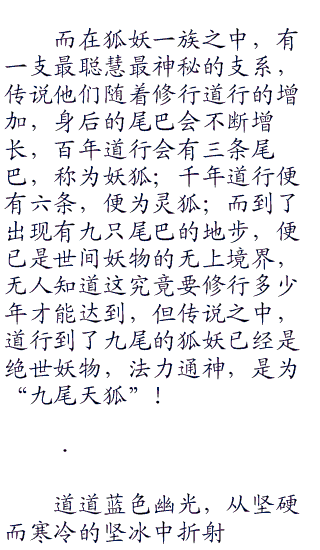 而在狐妖一族之中，有
一支最聪慧最神秘的支系，
传说他们随着修行道行的增
加，身后的尾巴会不断增
长，百年道行会有三条尾
巴，称为妖狐；千年道行便
有六条，便为灵狐；而到了
出现有九只尾巴的地步，便
已是世间妖物的无上境界，
无人知道这究竟要修行多少
年才能达到，但传说之中，
道行到了九尾的狐妖已经是
绝世妖物，法力通神，是为
“九尾天狐”！
．
道道蓝色幽光，从坚硬
而寒冷的坚冰中折射